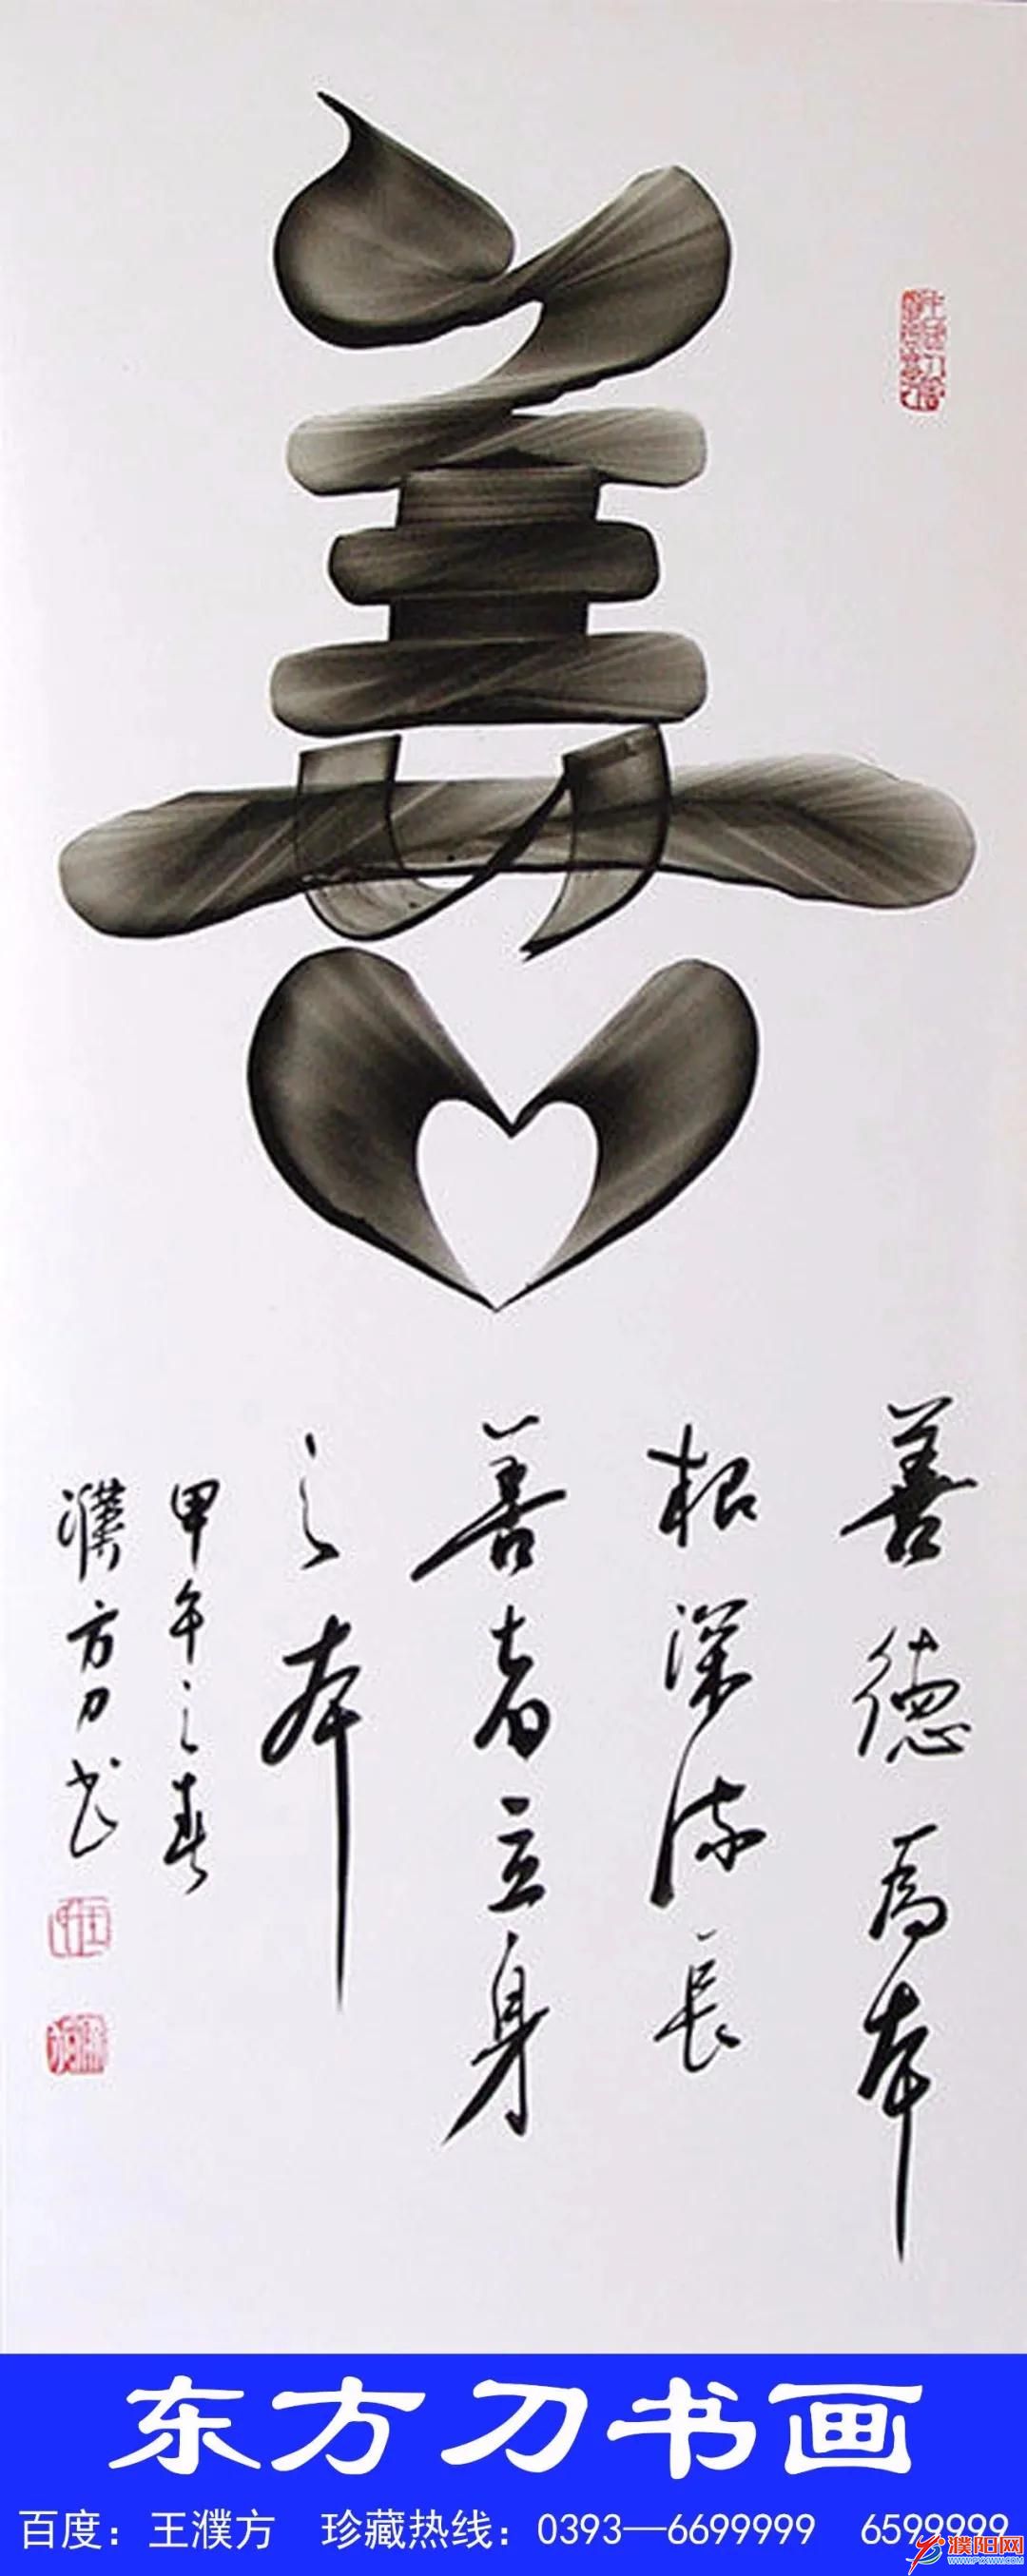 善
善德為本
根深流長
善者立身
之本
甲午之春
濮方刀书
东方刀书画
百度：王濮方 珍藏热线：0393—6699999 6599999
濮阳网
WWW.PYXWW.COM